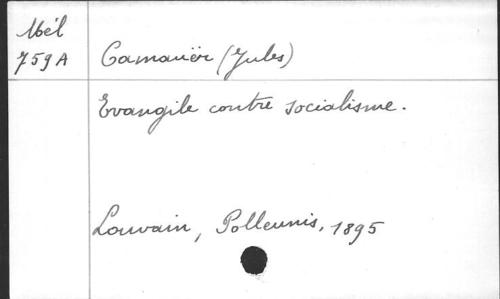 Mél
759A
Camauër (Jules)
Evangile contre socialisme.
Louvain, Polleunis, 1895